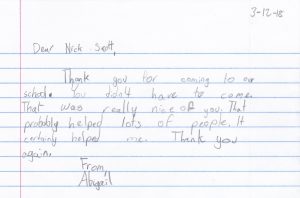 3-12-18
Dear Nick Scott,
Thank you for coming to our
school. You don't have to come.
That was really nice of you. That
probably helped lots of people. It
certainly helped me. Thank you
again.
From,
Abigail